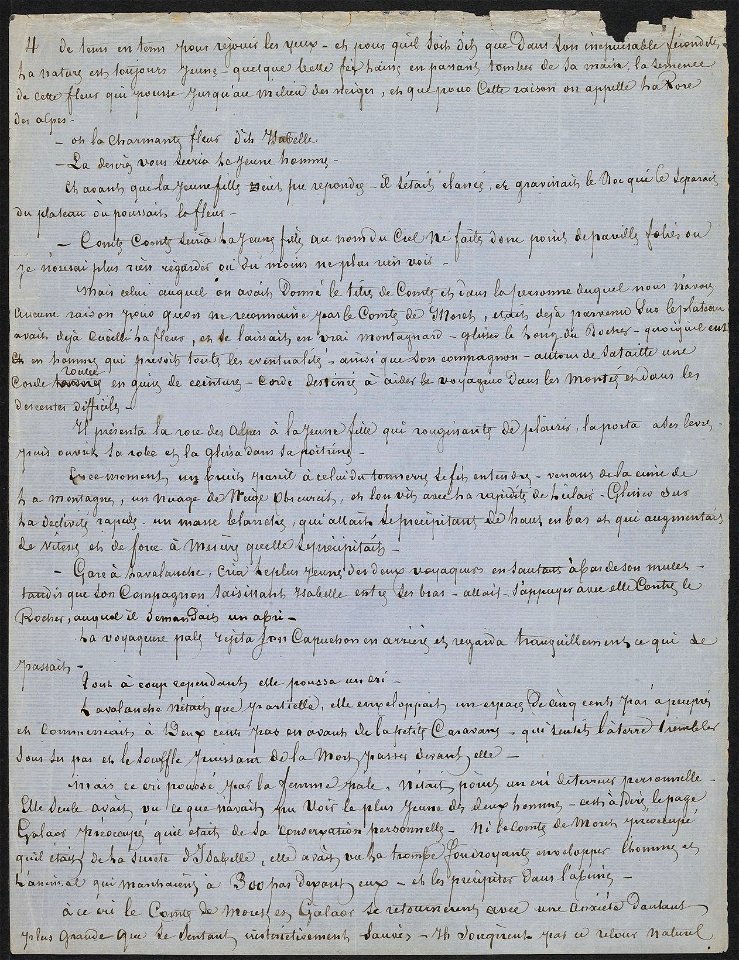 4 de tems en tems pour rejouir les yeux – et pour quil soit dit que dans son inepuisable fécondité
La nature est toujours jeune – quelque belle fée laisse en passant tomber de sa main la semence
de cette fleur qui pousse jusqu'au milieu des neiges, et que pour cette raison on appelle La Rose
des alpes –
– oh la charmante fleur dit Isabelle
– La desirez vous s'ecria Le jeune homme –
Et avant que la jeune fille eut pu repondre – il s'etait elancé, et gravissait le Roc qui le separait
du plateau où poussait la fleur –
– Comte Comte s'ecria La jeune fille au nom du Ciel ne faites donc point de pareilles folies ou
je n'oserai plus rien regarder ou du moins ne plus rien voir –
Mais celui auquel on avait donné le titre de Comte et dans la personne duquel nous n'avons
aucune raison pour qu'on ne reconnaisse pas le Comte de Moret, etait dejà parvenu sur le plateau
avait dejà cueilli la fleur, et se laissait en vrai montagnard – glisser le long du Rocher – quoiqu'il eut
en homme qui prevoit toutes les eventualités – ainsi que son compagnon – autour de sa taille une
Corde roulée en guise de ceinture – Corde destinée à aider le voyageur dans les montées et dans les
descentes difficiles –
Il présenta la rose des Alpes à la jeune fille qui rougissante de plaisir, la porta a ses levres
puis ouvrit sa robe et la glissa dans sa poitrine –
En ce moment un bruit pareil à celui du tonnerre se fit entendre – venant de la cime de
La montagne, un nuage de Neige obscurcit, et l'on vit avec la rapidité de L'eclair – Glisser sur
La declivité rapide – un masse blanche, qui allait se précipitant de haut en bas et qui augmentait
de vitesse et de force à mesure qu'elle se précipitait –
– Gare à L'avalanche, cria Le plus jeune des deux voyageurs en sautant à bas de son mulet –
tandis que son Compagnon saisissant Isabelle entre ses bras – allait – s'appuyer avec elle Contre le
Rocher, auquel il demandait un abri –
La voyageuse pale rejeta son Capuchon en arriere et regarda tranquillement ce qui se
passait –
Tout à coup cependant elle poussa un cri –
L'avalanche n'etait que partielle, elle enveloppait un espace de cinq cents pas à peu près
et Commencait à Deux cents pas en avant de la petite Caravane – qui sentit la terre trembler
sous ses pas et le souffle puissant de la Mort passer devant elle –
Mais ce cri poussé par la femme pale, n'etait point un cri de terreur personnelle –
Elle seule avait vu ce que n'avait pu voir le plus jeune des deux hommes – c'est à dire, le page
Galaor préocupé qu'il etait de sa conservation personnelle – Ni le Comte de Moret préocupé
qu'il était de La sureté d'Isabelle, elle avait vu La trombe foudroyante envelopper l'homme et
L'animal qui marchaient à 300 pas devant eux – et les precipiter dans l'abime –
à ce cri le Comte de Moret et Galaor se retournerent avec une anxiété d'autant
plus grande que se sentant instinctivement sauvés – Ils songerent par un retour naturel